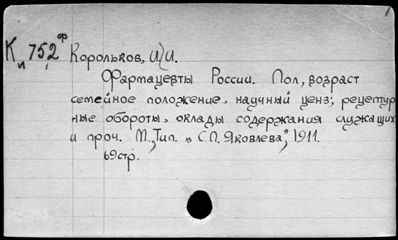 К 752 ф
и
Корольков, И. И.
Фармацевты России. Пол, возраст
семейное положение, научный ценз; рецептур
ные обороты, оклады содержания служащих
и проч. М., Тип. „С.П. Яковлева", 1911.
69стр.